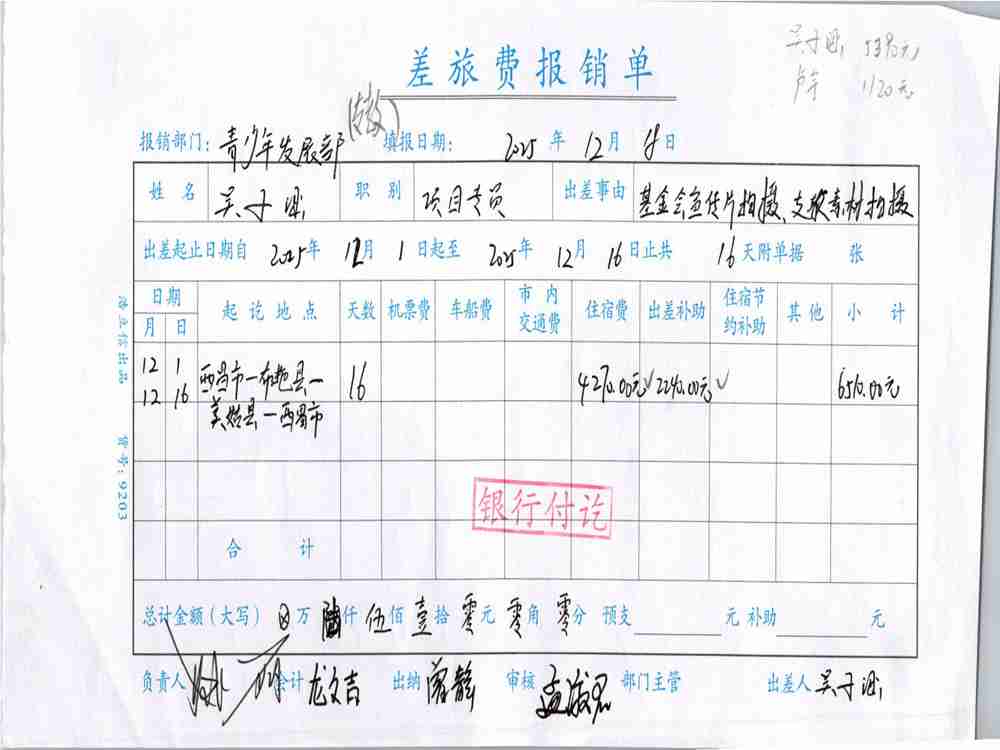 差旅费报销单
5390元
卢宇 1120元
报销部门：青少年发展部 填报日期： 2025 年 12 月 日
姓名 吴子 职别 项目专员 出差事由 基金会宣传片拍摄、支教素材拍摄
出差起止日期自 2025年 12月 1 日起至 2025年 12月 16日止共 16天附单据 张
日期 起讫地点 天数 机票费 车船费 市内交通费 住宿费 出差补助 住宿节约补助 其他 小计
月 日
12 1 西昌市—布拖县— 16 4270.00元 2240.00元 6510.00元
12 16 美姑县—西昌市
银行付讫
合计
总计金额（大写） 万 陆仟 伍佰 壹拾 零元 零角 零分 预支 元 补助 元
负责人 会计 龙文吉 出纳 静 审核 孟 部门主管 出差人 吴子
货号：9203